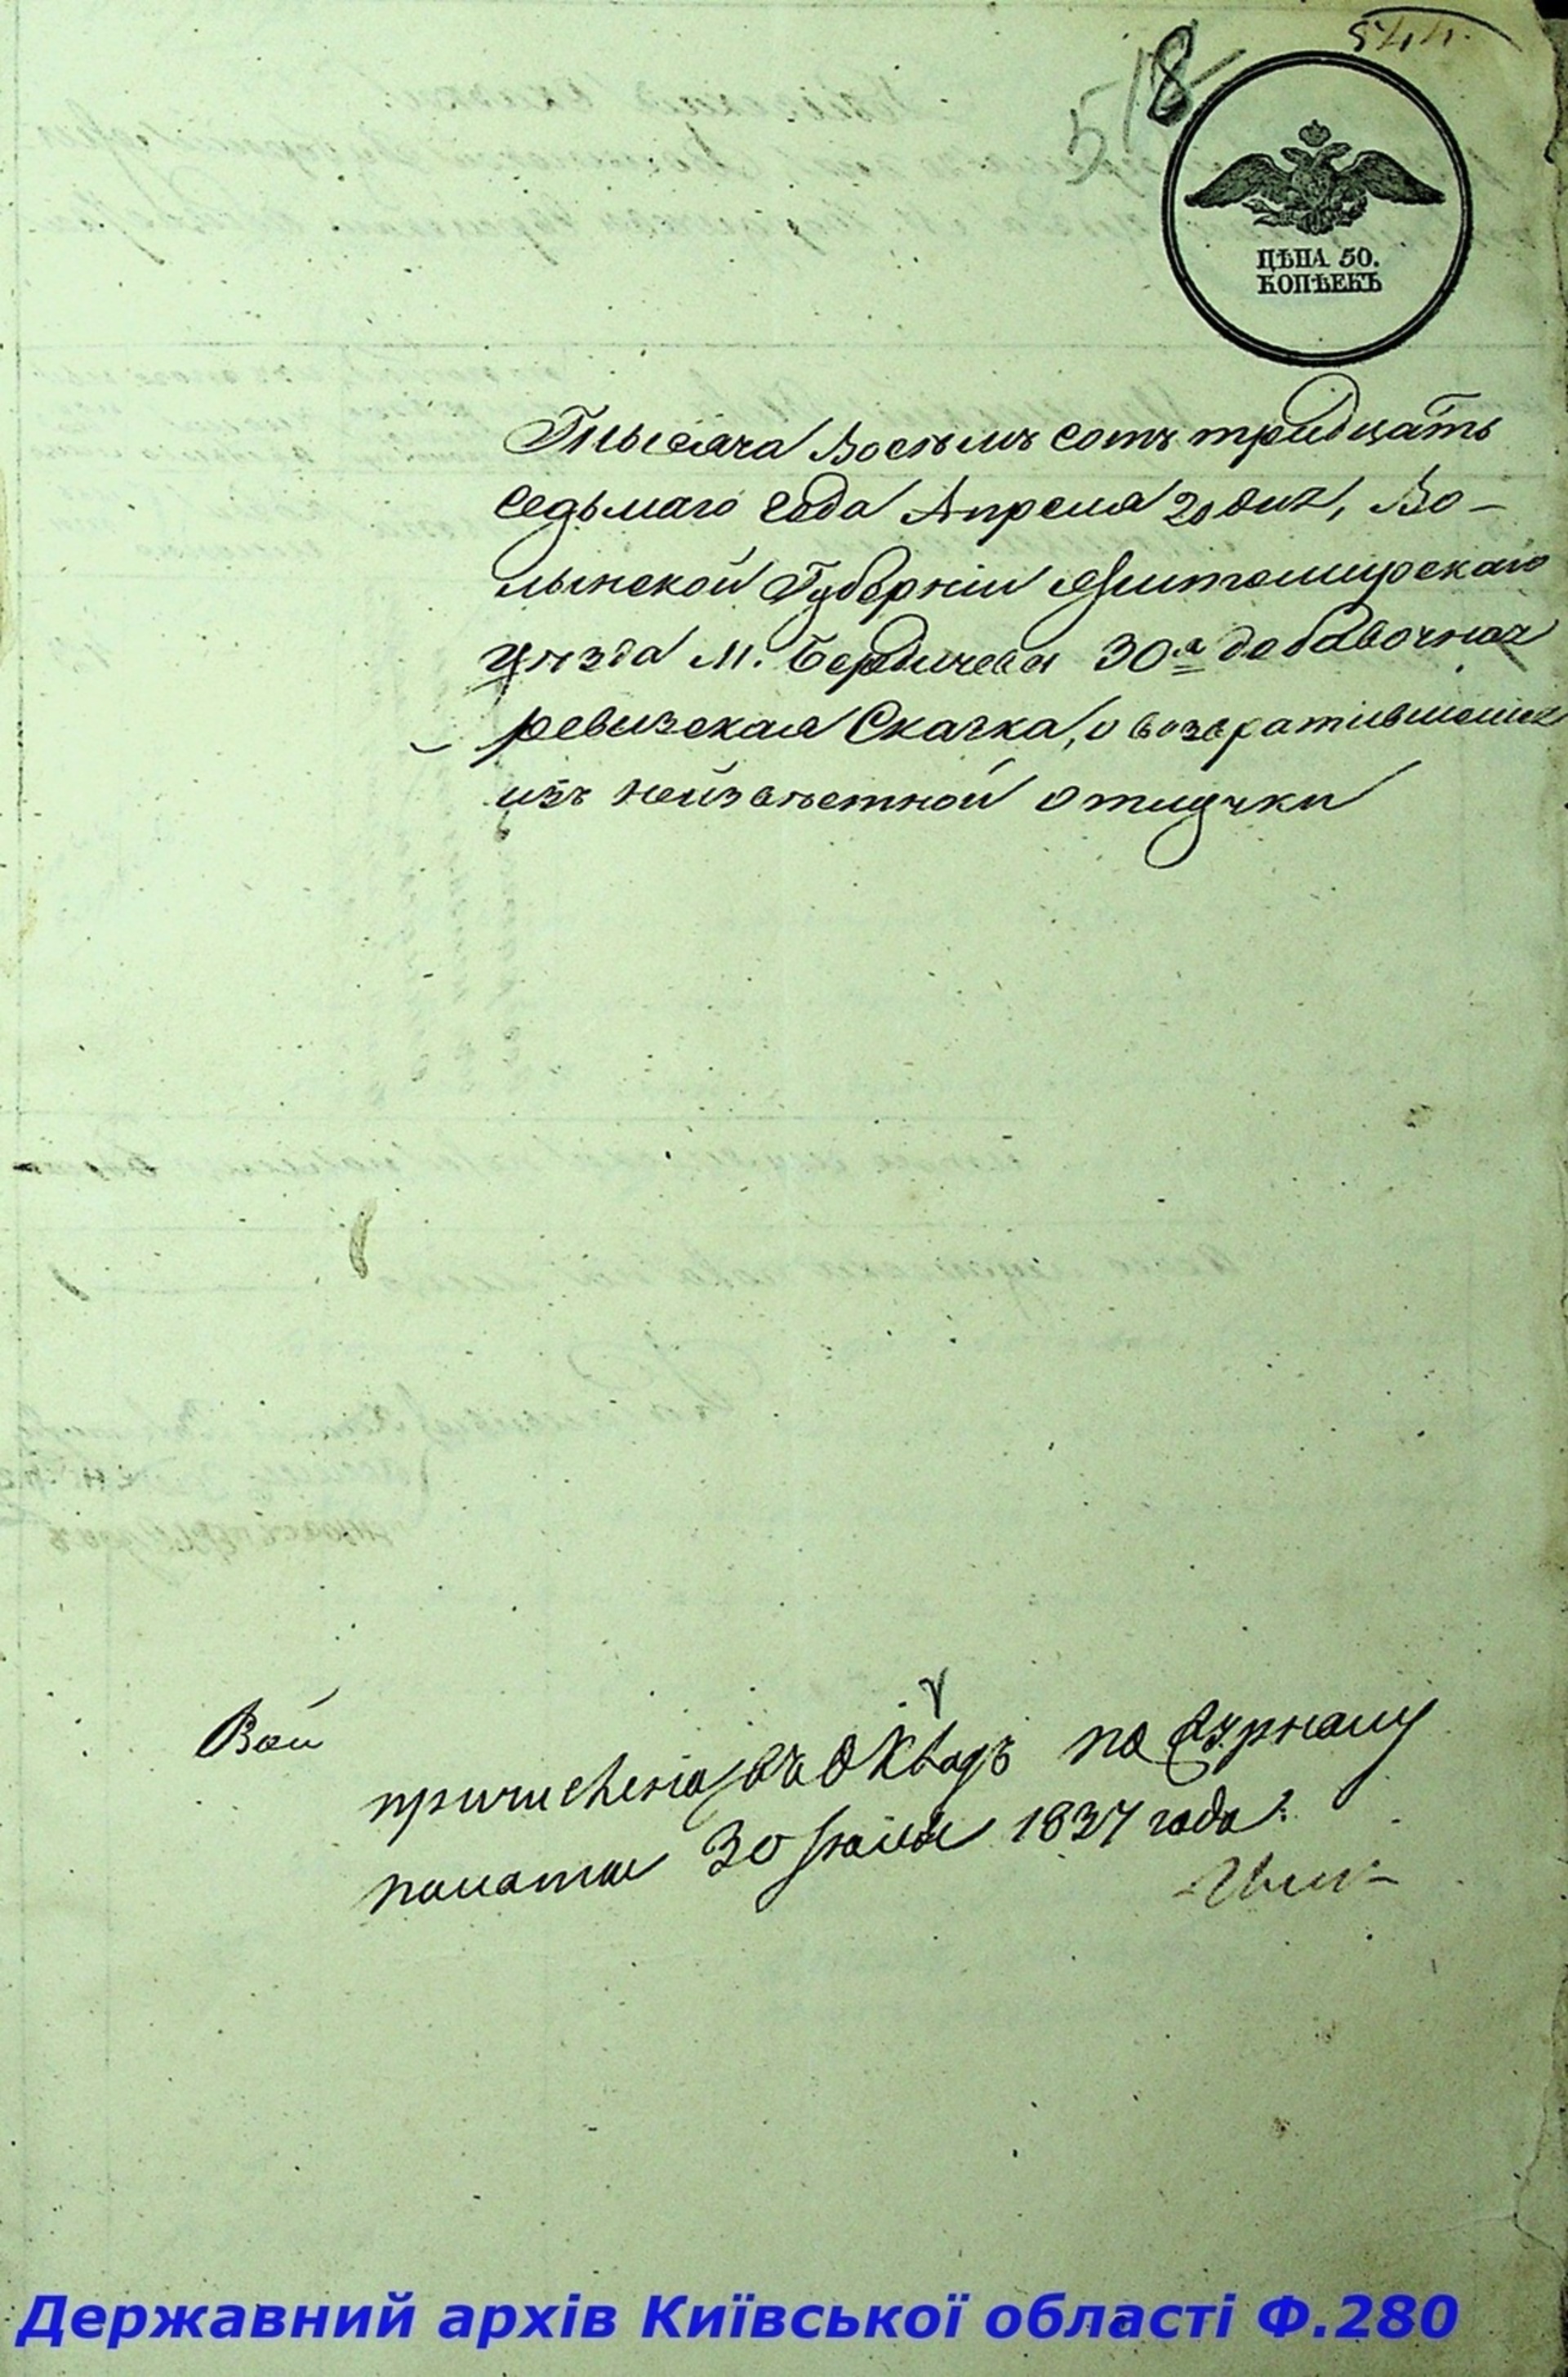 544.
518
ЦѢНА 50.
КОПѢЕКЪ
Тысяча Восемъ сотъ тридцать
седьмаго года Апреля 20 дня, Во-
лынской Губерніи Житомирскаго
уѣзда М. Бердичева 30.я добавочная
ревизская Скачка, о возвратившемся
изъ неизвѣстной отлучки
причисленія въ окладъ по журналу
палаты 30 1837 года
Державний архів Київської області Ф.280